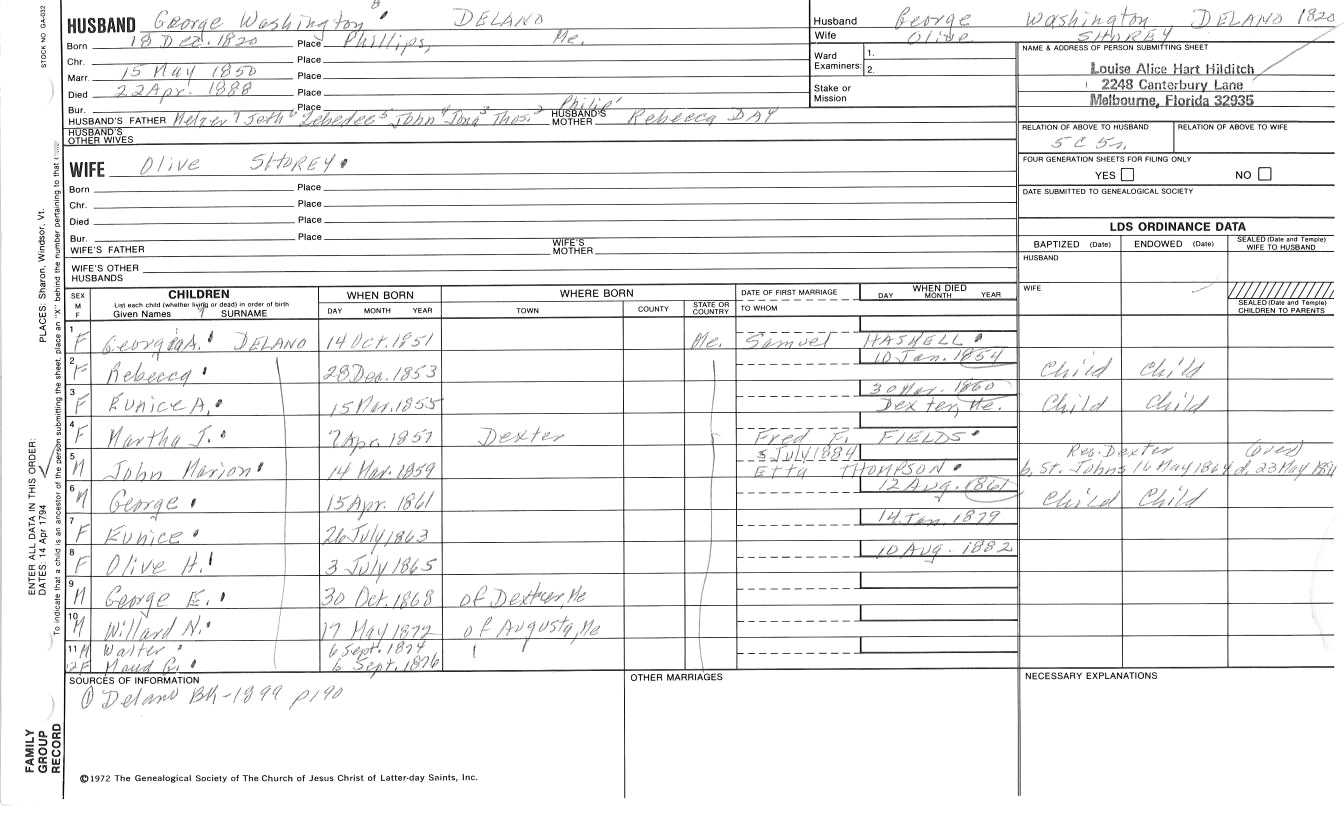 STOCK NO GA-032
HUSBAND George Washington 8 DELANO
Born 18 Dec. 1820 Place Phillips, Me.
Chr. Place
Marr. 15 May 1850 Place
Died 22 Apr. 1888 Place
Bur. Place
HUSBAND'S FATHER Melzer 7 Seth 6 Zebedee 5 John 4 Jona 3 Thos. 2 Philip 1 HUSBAND'S MOTHER Rebecca DAY
HUSBAND'S OTHER WIVES
WIFE Olive SHOREY
Born Place
Chr. Place
Died Place
Bur. Place
WIFE'S FATHER WIFE'S MOTHER
WIFE'S OTHER HUSBANDS
Husband George Washington DELANO 1820
Wife Olive SHOREY
Ward Examiners: 1. 2.
Stake or Mission
NAME & ADDRESS OF PERSON SUBMITTING SHEET
Louise Alice Hart Hilditch
2248 Canterbury Lane
Melbourne, Florida 32935
RELATION OF ABOVE TO HUSBAND RELATION OF ABOVE TO WIFE
5 C 5r.
FOUR GENERATION SHEETS FOR FILING ONLY
YES NO
DATE SUBMITTED TO GENEALOGICAL SOCIETY
LDS ORDINANCE DATA
BAPTIZED (Date) ENDOWED (Date) SEALED (Date and Temple) WIFE TO HUSBAND
HUSBAND
WIFE
SEALED (Date and Temple) CHILDREN TO PARENTS
SEX M F
CHILDREN
List each child (whether living or dead) in order of birth
Given Names SURNAME
WHEN BORN
DAY MONTH YEAR
WHERE BORN
TOWN COUNTY STATE OR COUNTRY
DATE OF FIRST MARRIAGE
TO WHOM
WHEN DIED
DAY MONTH YEAR
1 F Georgia A. DELANO 14 Oct. 1851 Me. Samuel HASKELL
2 F Rebecca 28 Dec. 1853 10 Jan. 1854 Child Child
3 F Eunice A. 15 Mar. 1855 30 Mar. 1860 Dexter, Me. Child Child
4 F Martha J. 7 Apr. 1857 Dexter Fred F. FIELDS
5 M John Marion 14 Mar. 1859 5 July 1884 Etta THOMPSON Res. Dexter (over)
b. St. Johns 16 May 1864 d. 23 May 1891
6 M George 15 Apr. 1861 12 Aug. 1861 Child Child
7 F Eunice 26 July 1863 14 Jan. 1879
8 F Olive H. 3 July 1865 10 Aug. 1882
9 M George E. 30 Oct. 1868 of Dexter, Me
10 M Willard N. 17 May 1872 of Augusta, Me
11 M Walter 6 Sept. 1874
12 F Maud G. 6 Sept. 1876
SOURCES OF INFORMATION
① Delano Bk-1899 p190
OTHER MARRIAGES
NECESSARY EXPLANATIONS
©1972 The Genealogical Society of The Church of Jesus Christ of Latter-day Saints, Inc.
FAMILY GROUP RECORD
ENTER ALL DATA IN THIS ORDER:
DATES: 14 Apr 1794
PLACES: Sharon, Windsor, Vt.
To indicate that a child is an ancestor of the person submitting the sheet, place an "X" behind the number pertaining to that